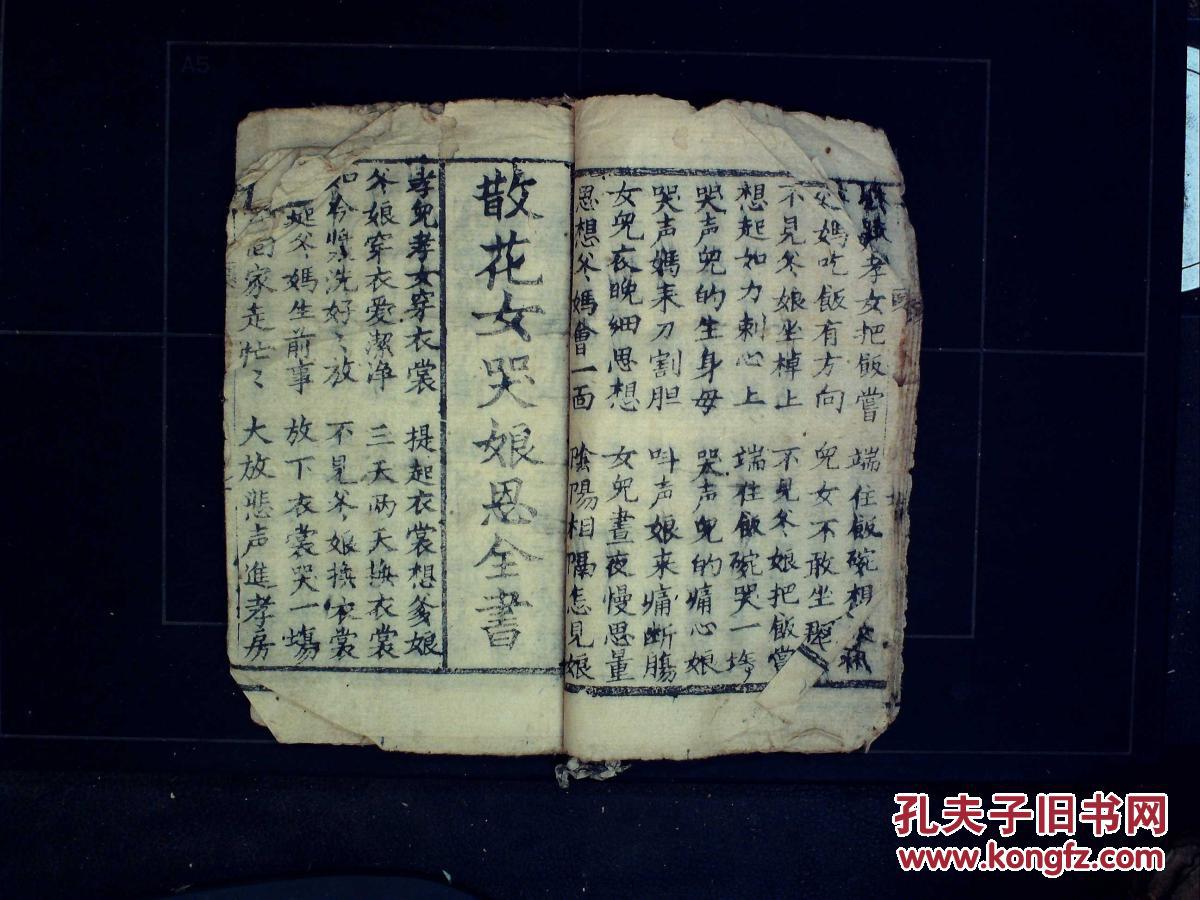 孝女把飯嘗 端住飯碗想
父媽吃飯有方向 兒女不敢坐
不見爹娘坐棹上 不見爹娘把飯嘗
想起如力刺心上 端住飯碗哭一場
哭声兒的生身母 哭声兒的痛心娘
哭声媽来刀割胆 叫声娘来痛断腸
女兒衣晚細思想 女兒晝夜慢思量
思想爹媽會一面 陰陽相隔怎見娘
散花女哭娘恩全書
孝兒孝女穿衣裳 提起衣裳想爹娘
爹娘穿衣愛潔净 三天两天換衣裳
洗好好放 不見爹娘換衣裳
起爹媽生前事 放下衣裳哭一塲
回家走忙忙 大放悲声進孝房
A5
孔夫子旧书网
www.kongfz.com